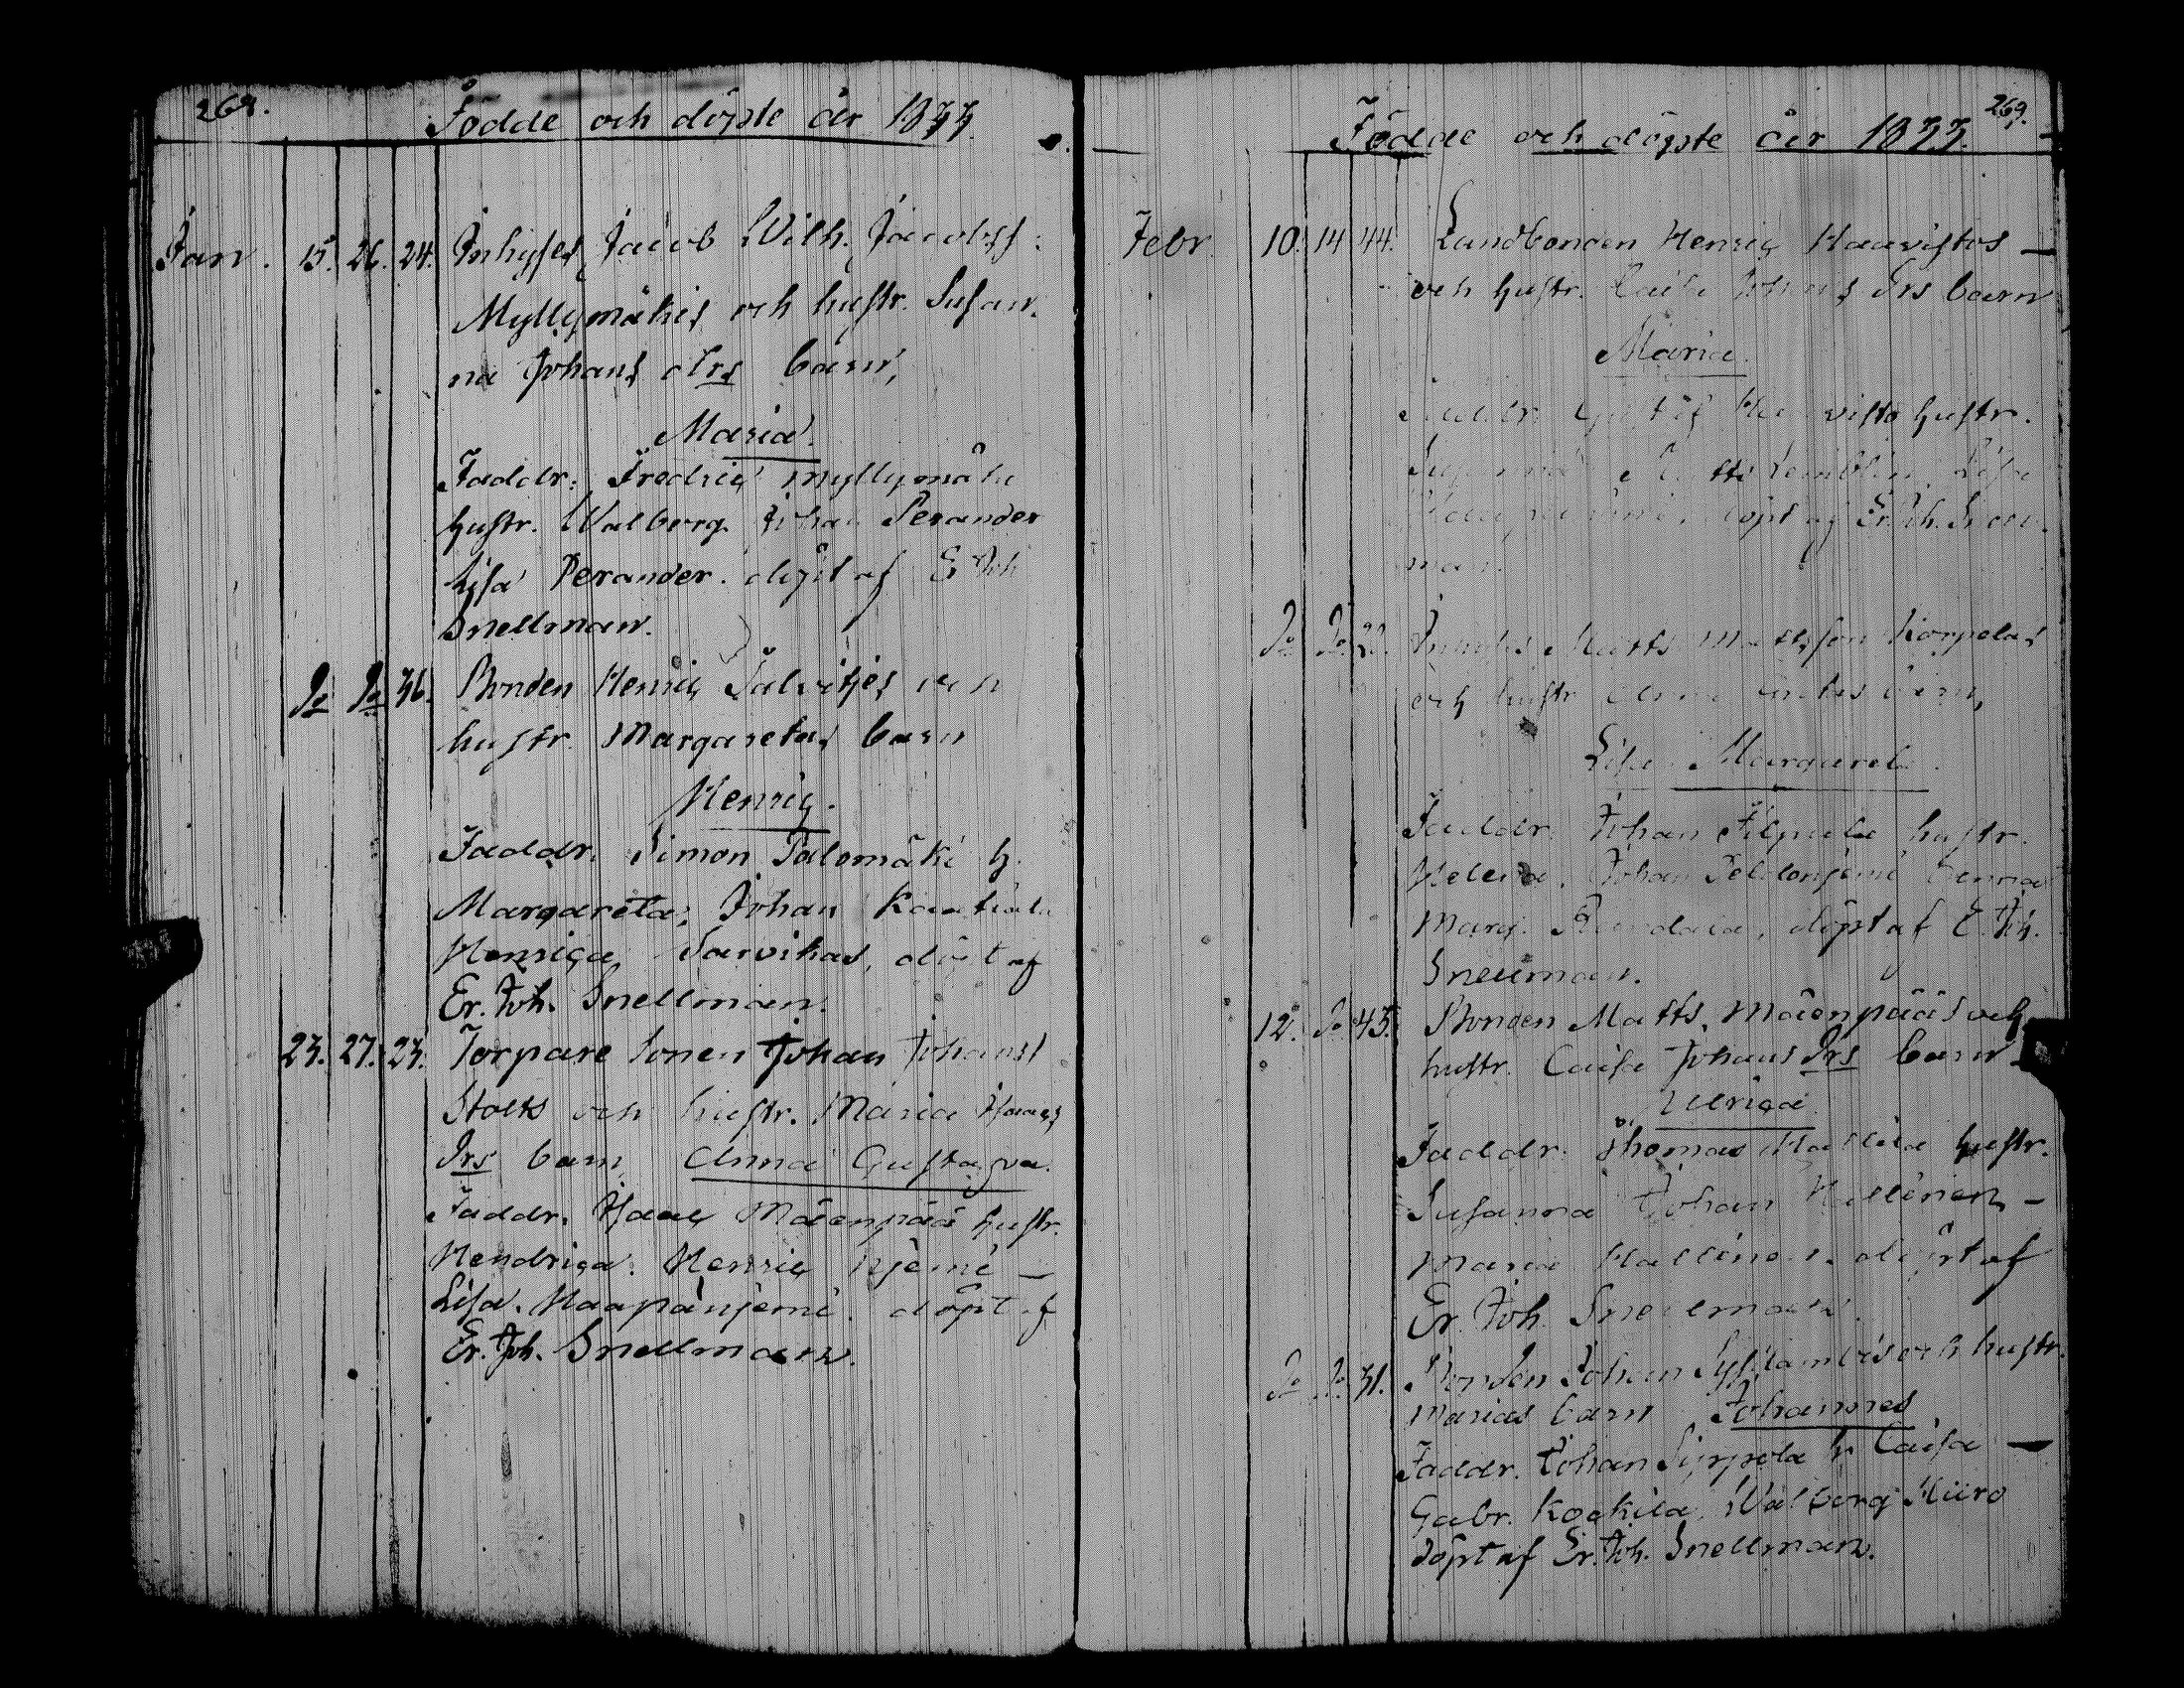 268.
Födde och döpte år 1833.
Jan. 15. 26. 24. Inhyses Jacob Wilh. Jacobss:
Myllymäkis och hustr. Susan-
na Johans drs barn,
Maria.
Faddr: Fredric Myllymäki
hustr. Walborg. Johan Perander
Lisa Perander. döpt af E Joh
Snellman.
Do Do 36. Bonden Henric Salvijes och
hustr. Margaretas barn
Henric.
Faddr. Simon Palomäki h.
Margareta, Johan
Henrica Sarvikas, döpt af
Er. Joh. Snellman.
23. 27. 23. Torpare Sonen Johan Johanss
Stolts och hustr. Maria Isaacs
Drs barn Anna Gustafva.
Faddr. Isaac Mäenpää hustr.
Hendrica. Henric Njemi —
Lisa. Haapanjemi. döpt af
Er. Joh. Snellman.
269.
Födde och döpte år 1833.
Febr. 10. 14. 44. Landbonden Henric Haavistos —
och hustr. Caisa Johans Drs barn
Maria.
Faddr. Gustaf Haavisto hustr.
Susanna Lisa
döpt af Er. Joh. Snell-
man.
Do Do Inhyses Matts Mattsson Korpelas
och hustr Anna barn,
Lisa Margareta.
Faddr. Johan Filpula hustr.
Helena. Johan Peldonjemi
Marg. döpt af E. Joh.
Snellman.
12. Do 43. Bonden Matts Mäenpääs och
hustr. Caisa Johans Drs barn
Ulrica
Faddr. Thomas hustr.
Susanna Johan —
Maria döpt af
Er. Joh. Snellman.
Do Do 31. Bonden Johan och hustr.
Marias barn Johannes
Faddr. Johan Syrpola h. Caisa —
Gabr. Koskila, Walborg Miiro
döpt af Er. Joh. Snellman.